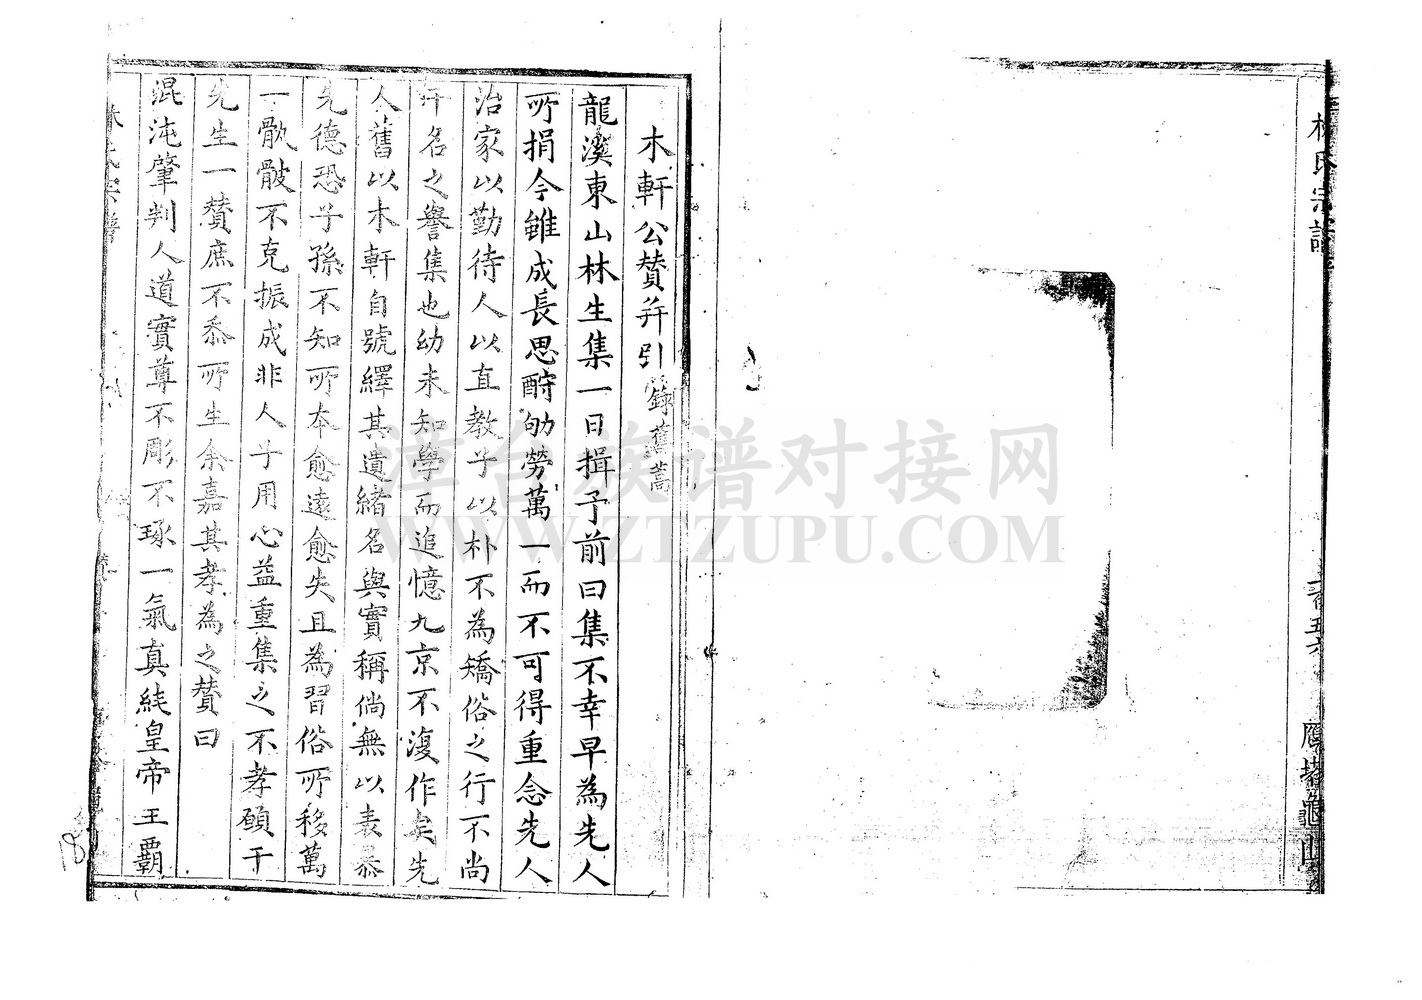 林氏宗譜
木軒公贊并引 錄舊蒿
龍溪東山林生集一日揖予前曰集不幸早為先人
所捐今雖成長思酧劬勞萬一而不可得重念先人
治家以勤待人以直教子以朴不為矯俗之行不尚
奸名之譽集也幼未知學而追憶九京不復作矣先
人舊以木軒自號繹其遺緒名與實稱倘無以表暴
先德恐子孫不知所本愈遠愈失且為習俗所移萬
一骫骳不克振成非人子用心益重集之不孝碩干
先生一贊庶不忝所生余嘉其孝為之贊曰
混沌肇判人道實尊不彫不琢一氣真純皇帝王霸
林氏宗譜
漳台族谱对接网
WWW.ZTZUPU.COM
18